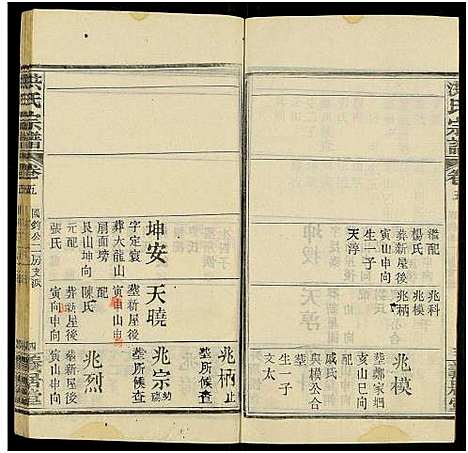 洪氏宗譜
卷五
繼配
楊氏
葬新屋後
寅山申向
生一子
天淳
兆科
兆模
兆柄
兆模
葬鄭家垇
亥山巳向
戚氏
與模公合
生一子
文太
兆柄 止
塟所候查
洪氏宗譜
卷五
國鈞公二房支派
坤安
字定寰
葬大龍山
扇面塝
艮山坤向
元配
張氏
天曉
塟新屋後
寅山申山
配
陳氏
葬新屋後
寅向申向
兆宗
塟所候查
兆烈
塟新屋後
寅山申向
四